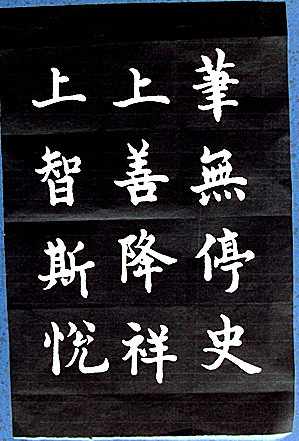 筆無停史
上善降祥
上智斯悅